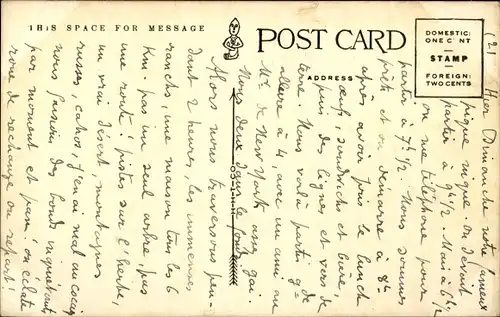 THIS SPACE FOR MESSAGE
POST CARD
ADDRESS
DOMESTIC:
ONE CENT
STAMP
FOREIGN:
TWO CENTS
(2) Hier Dimanche notre fameux
pique nique. On devait
partir à 9h 1/2. Mais à 6h 1/2
on me téléphone pour
partir à 7h 1/2. Nous sommes
prêts et on démarre à 8h
après avoir pris le lunch
œufs, sandwichs et bière,
puis des lignes et vers de
terre. Nous voilà partis
allure à 4 avec un ami au
Mr. de New York assez gai.
Nous deux dans le fond
Alors nous traversons pen-
dant 2 heures, les immenses
ranchs, une maison tous les 6
Km pas un seul arbre pas
une route! pistes sur l'herbe,
un vrai désert, montagnes
russes, cahots, j'en ai mal au
nous faisions des bonds inquiétants
par moment et pum! on éclate
roue de rechange on repart!